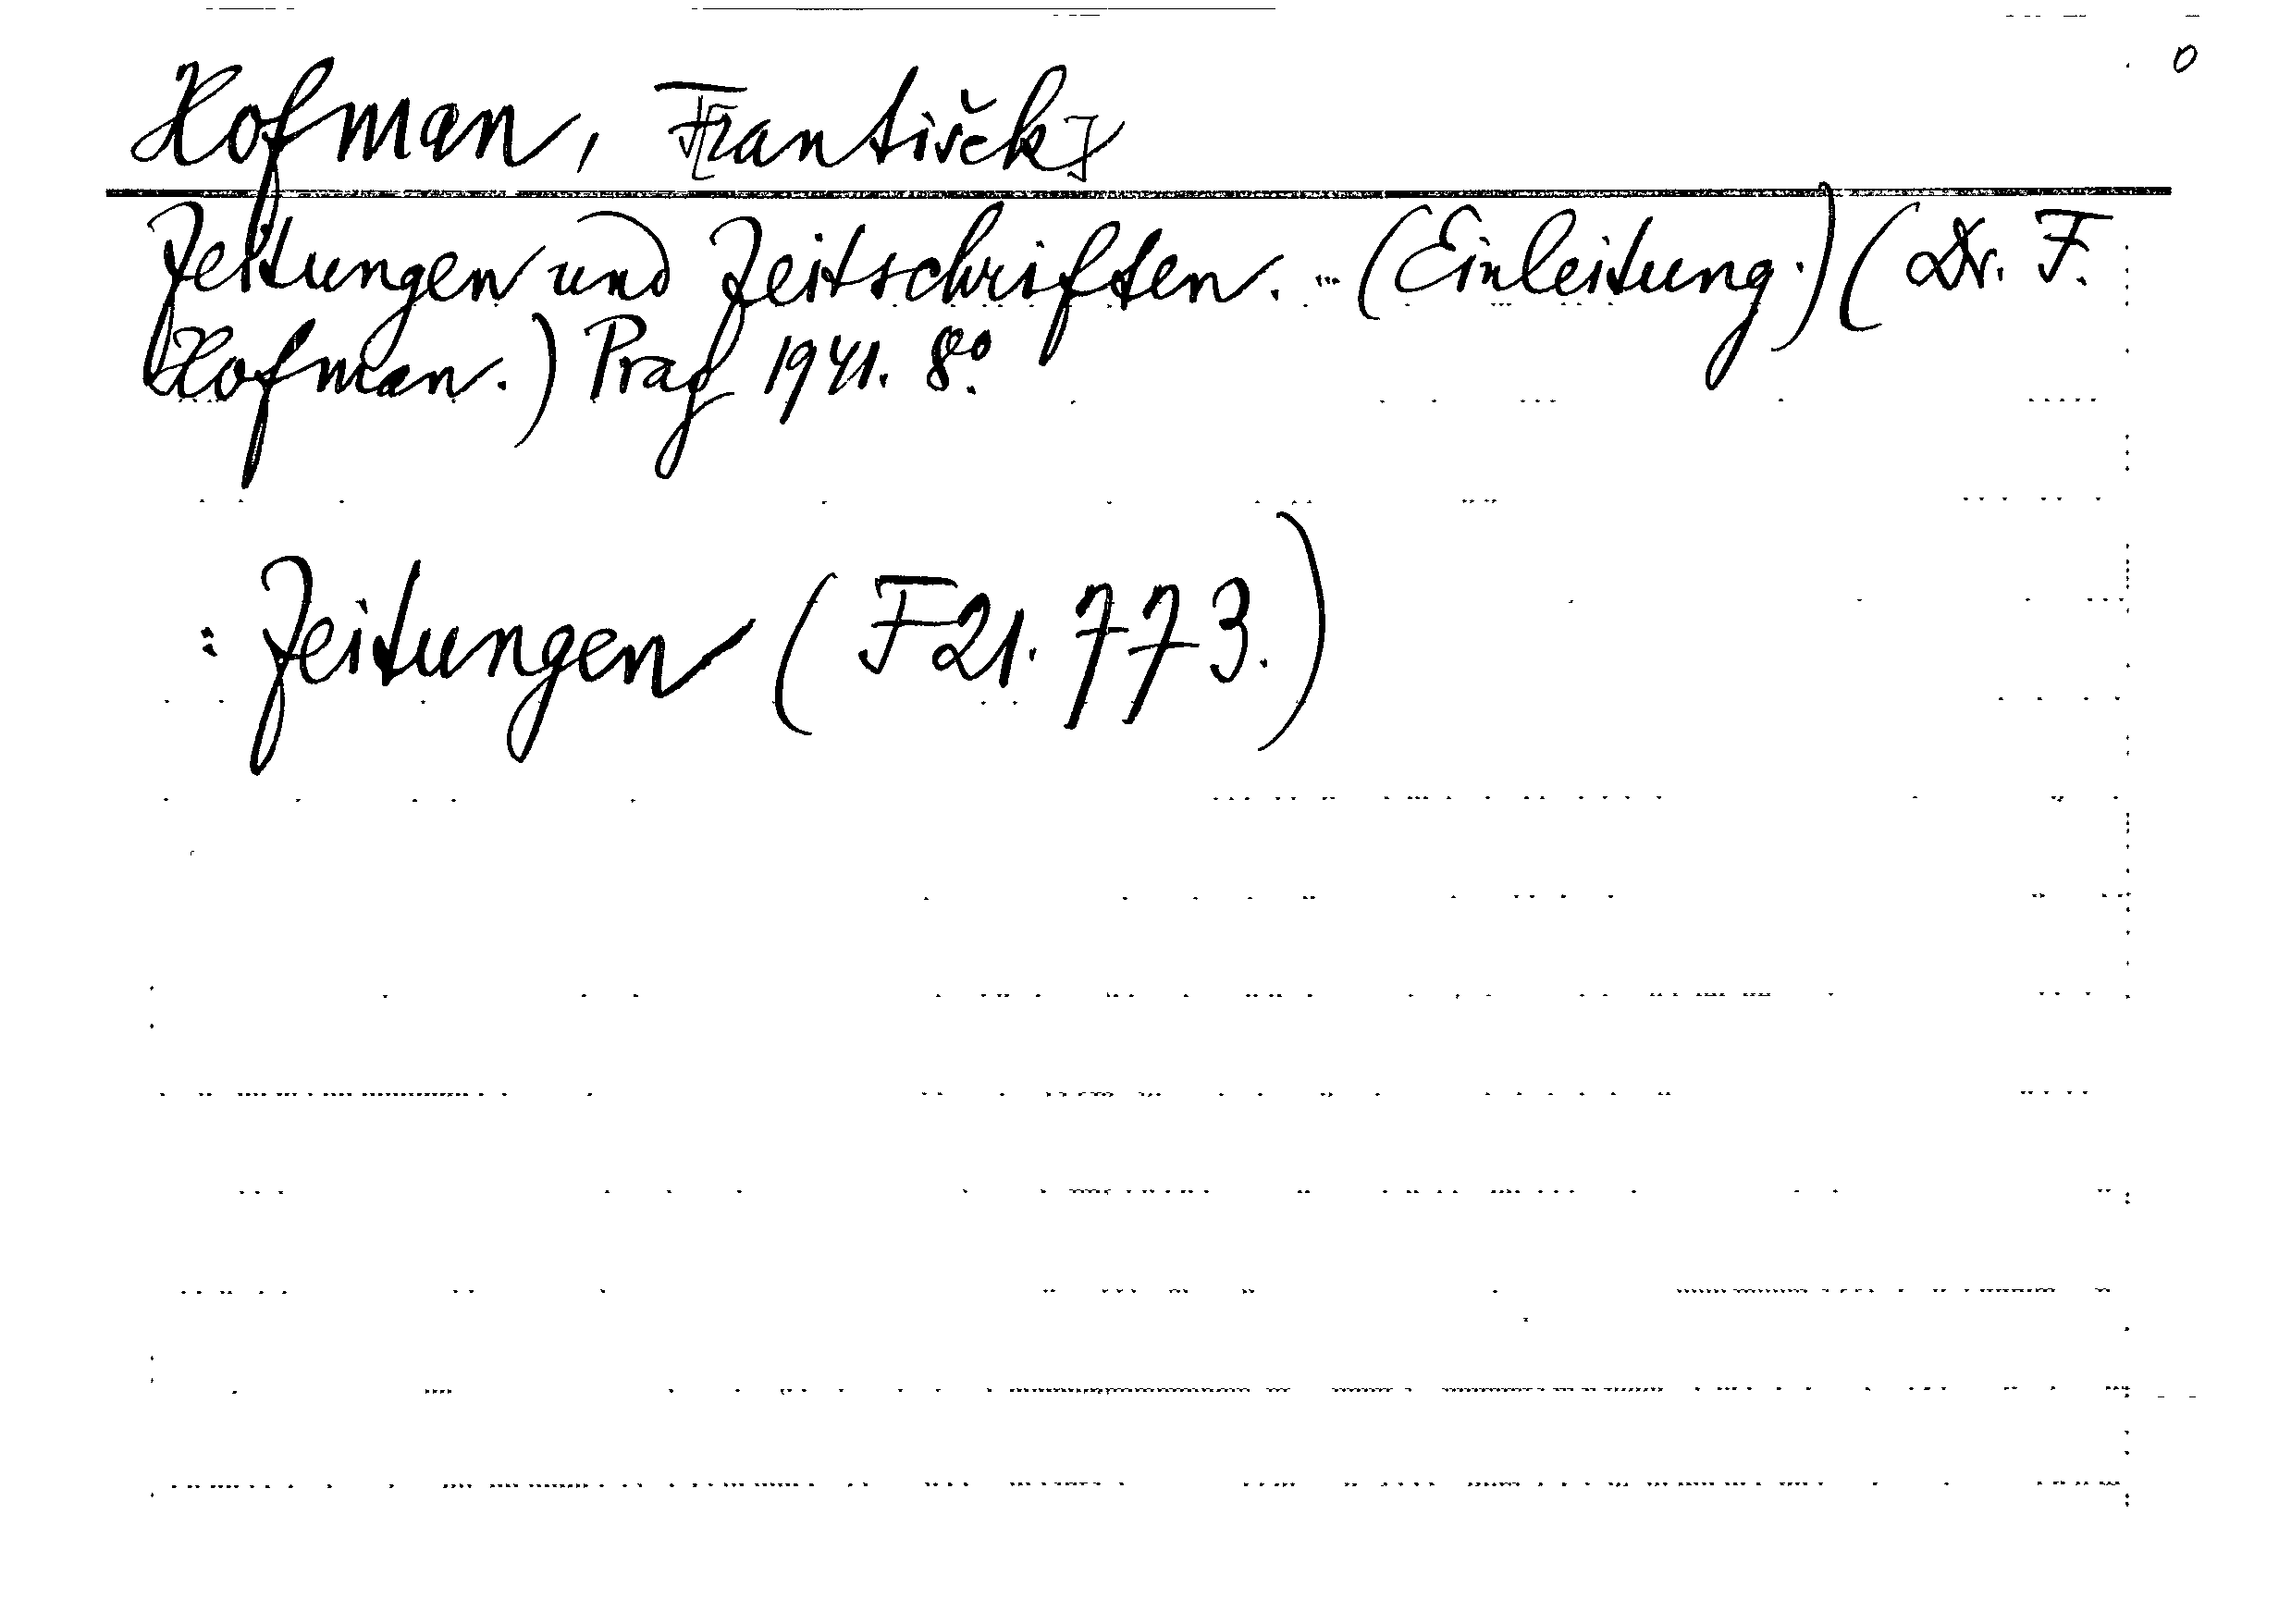 0
Hofman, F[rantišek]
Zeitungen und Zeitschriften. … (Einleitung.) (Dr. F.
Hofman.) Prag 1941. 8°.
: Zeitungen (F 21.773.)